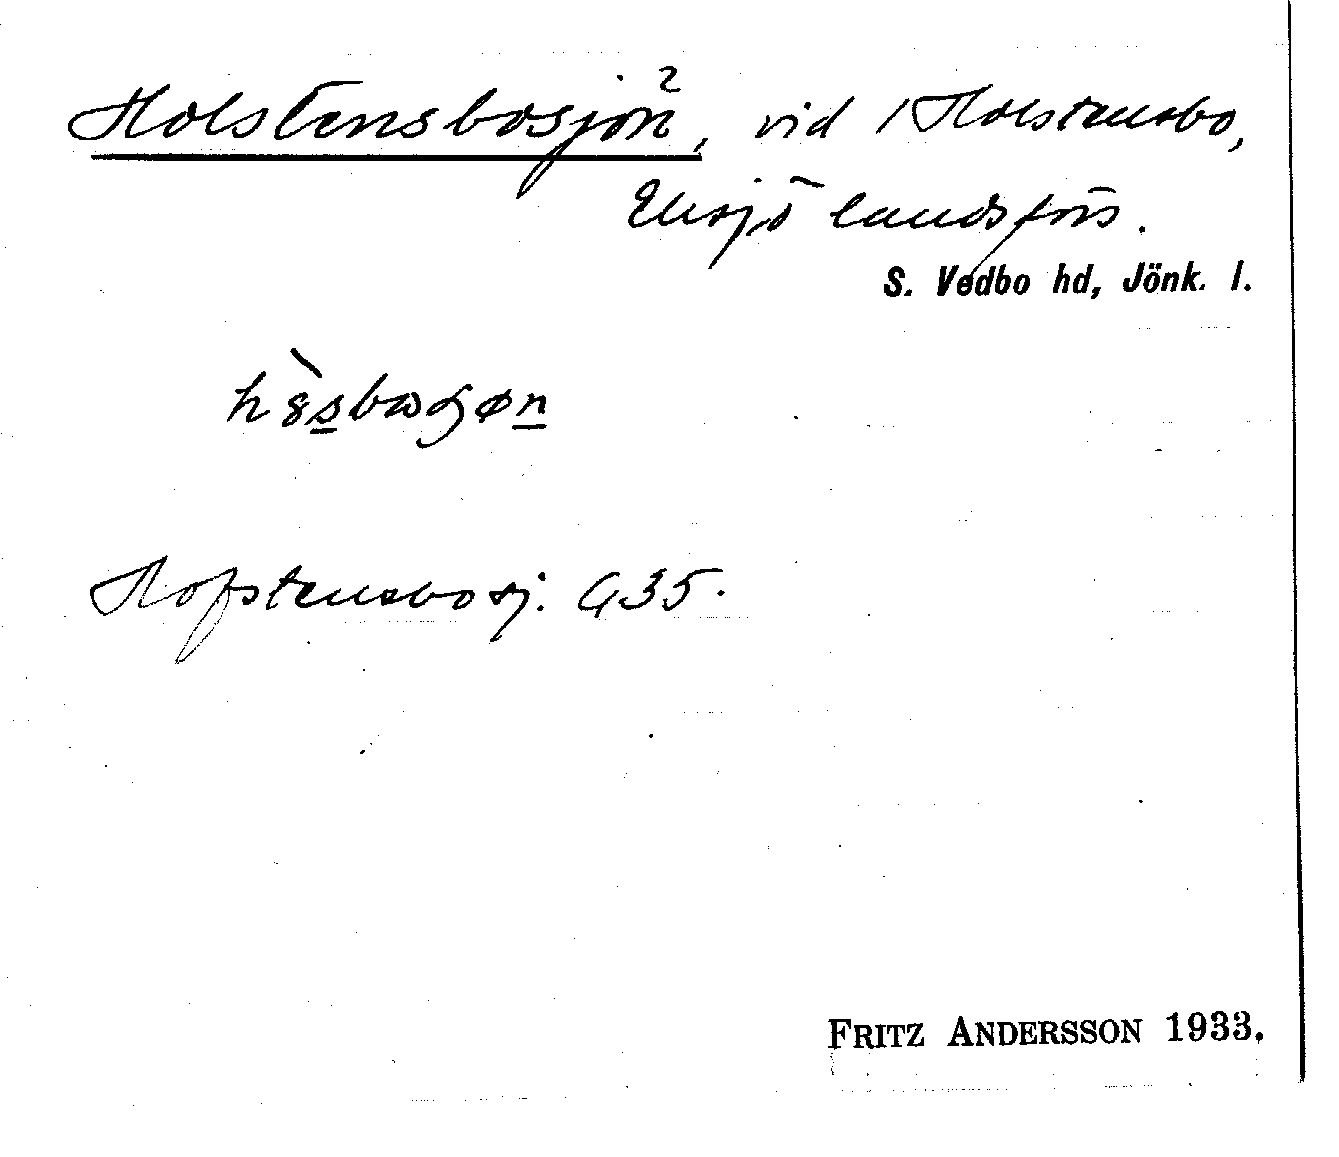 Holstensbosjön², vid / Holstensbo,
Eksjö landsförs.
S. Vedbo hd, Jönk. l.
Hofstensbosj. G35.
FRITZ ANDERSSON 1933.